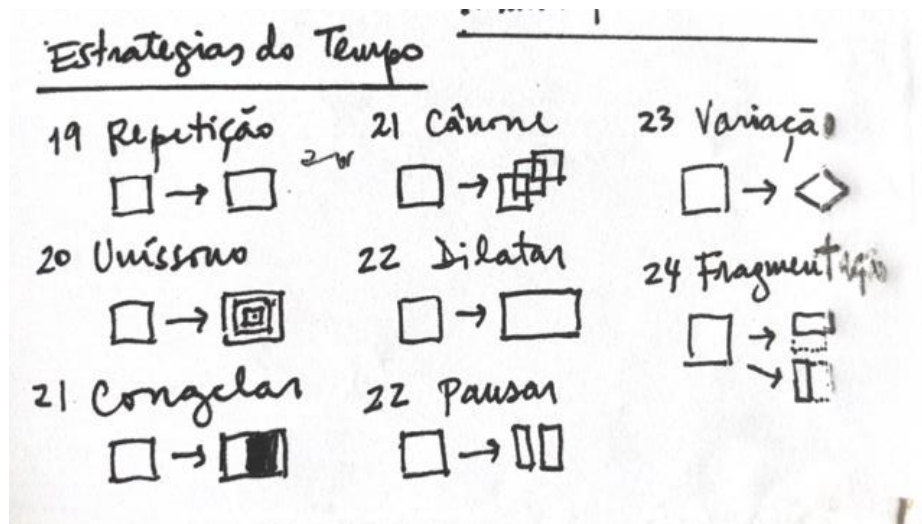 Estrategias do Tempo
19 Repetição
20 Uníssono
21 Congelar
21 Cânone
22 Dilatar
22 Pausar
23 Variação
24 Fragmentação